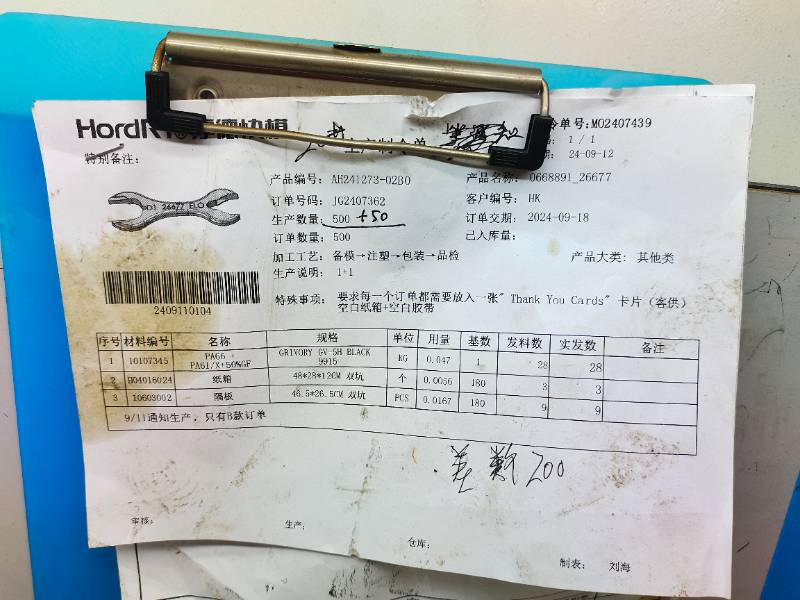 特别备注:
令单号:MO2407439
1 / 1
24-09-12
产品编号: AH241273-02B0
产品名称: 0668891_26677
订单号码: JG2407362
客户编号: HK
生产数量: 500 +50
订单交期: 2024-09-18
订单数量: 500
已入库量:
加工工艺: 备模→注塑→包装→品检
产品大类: 其他类
生产说明: 1+1
2409110104
特殊事项: 要求每一个订单都需要放入一张"Thank You Cards"卡片(客供)
空白纸箱+空白胶带
序号 材料编号 名称 规格 单位 用量 基数 发料数 实发数 备注
1 10107345 PA66 + PA6I/X+50%GF GRIVORY GV-5H BLACK 9915 KG 0.047 1 28 28
2 H04016024 纸箱 48*28*12CM 双坑 个 0.0056 180 3 3
3 10603002 隔板 46.5*26.5CM 双坑 PCS 0.0167 180 9 9
9/11通知生产,只有B款订单
差数200
审核:
生产:
仓库:
制表: 刘海